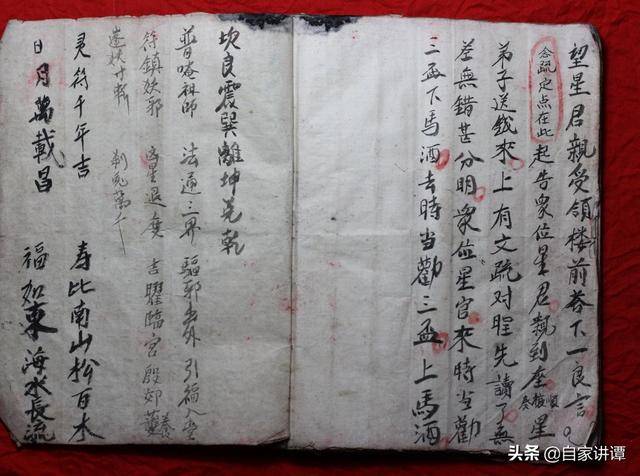 望星君親受領楼前答下一良言
念疏定点在此
起告衆位星君親到座
星
弟子送錢来上有文疏对
先讀了無
差無錯甚分明衆位星官来時当勸
三盃下馬酒去時当勸三盃上馬酒
坎艮震巽離坤兑乾
普唵祖師 法通三界 驅邪出外 引福入堂
符鎮妖邪
星退度 吉曜臨宫
灵符千年吉 寿比南山松百木
日月萬載昌 福如東海水長流
头条 @自家讲谭